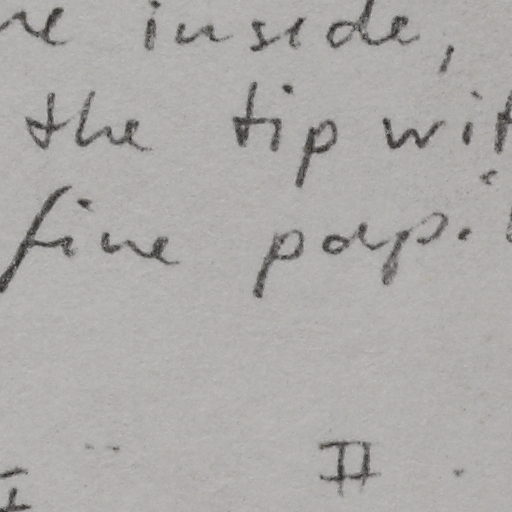 ne inside,
the tip wit
fine pap.
I II